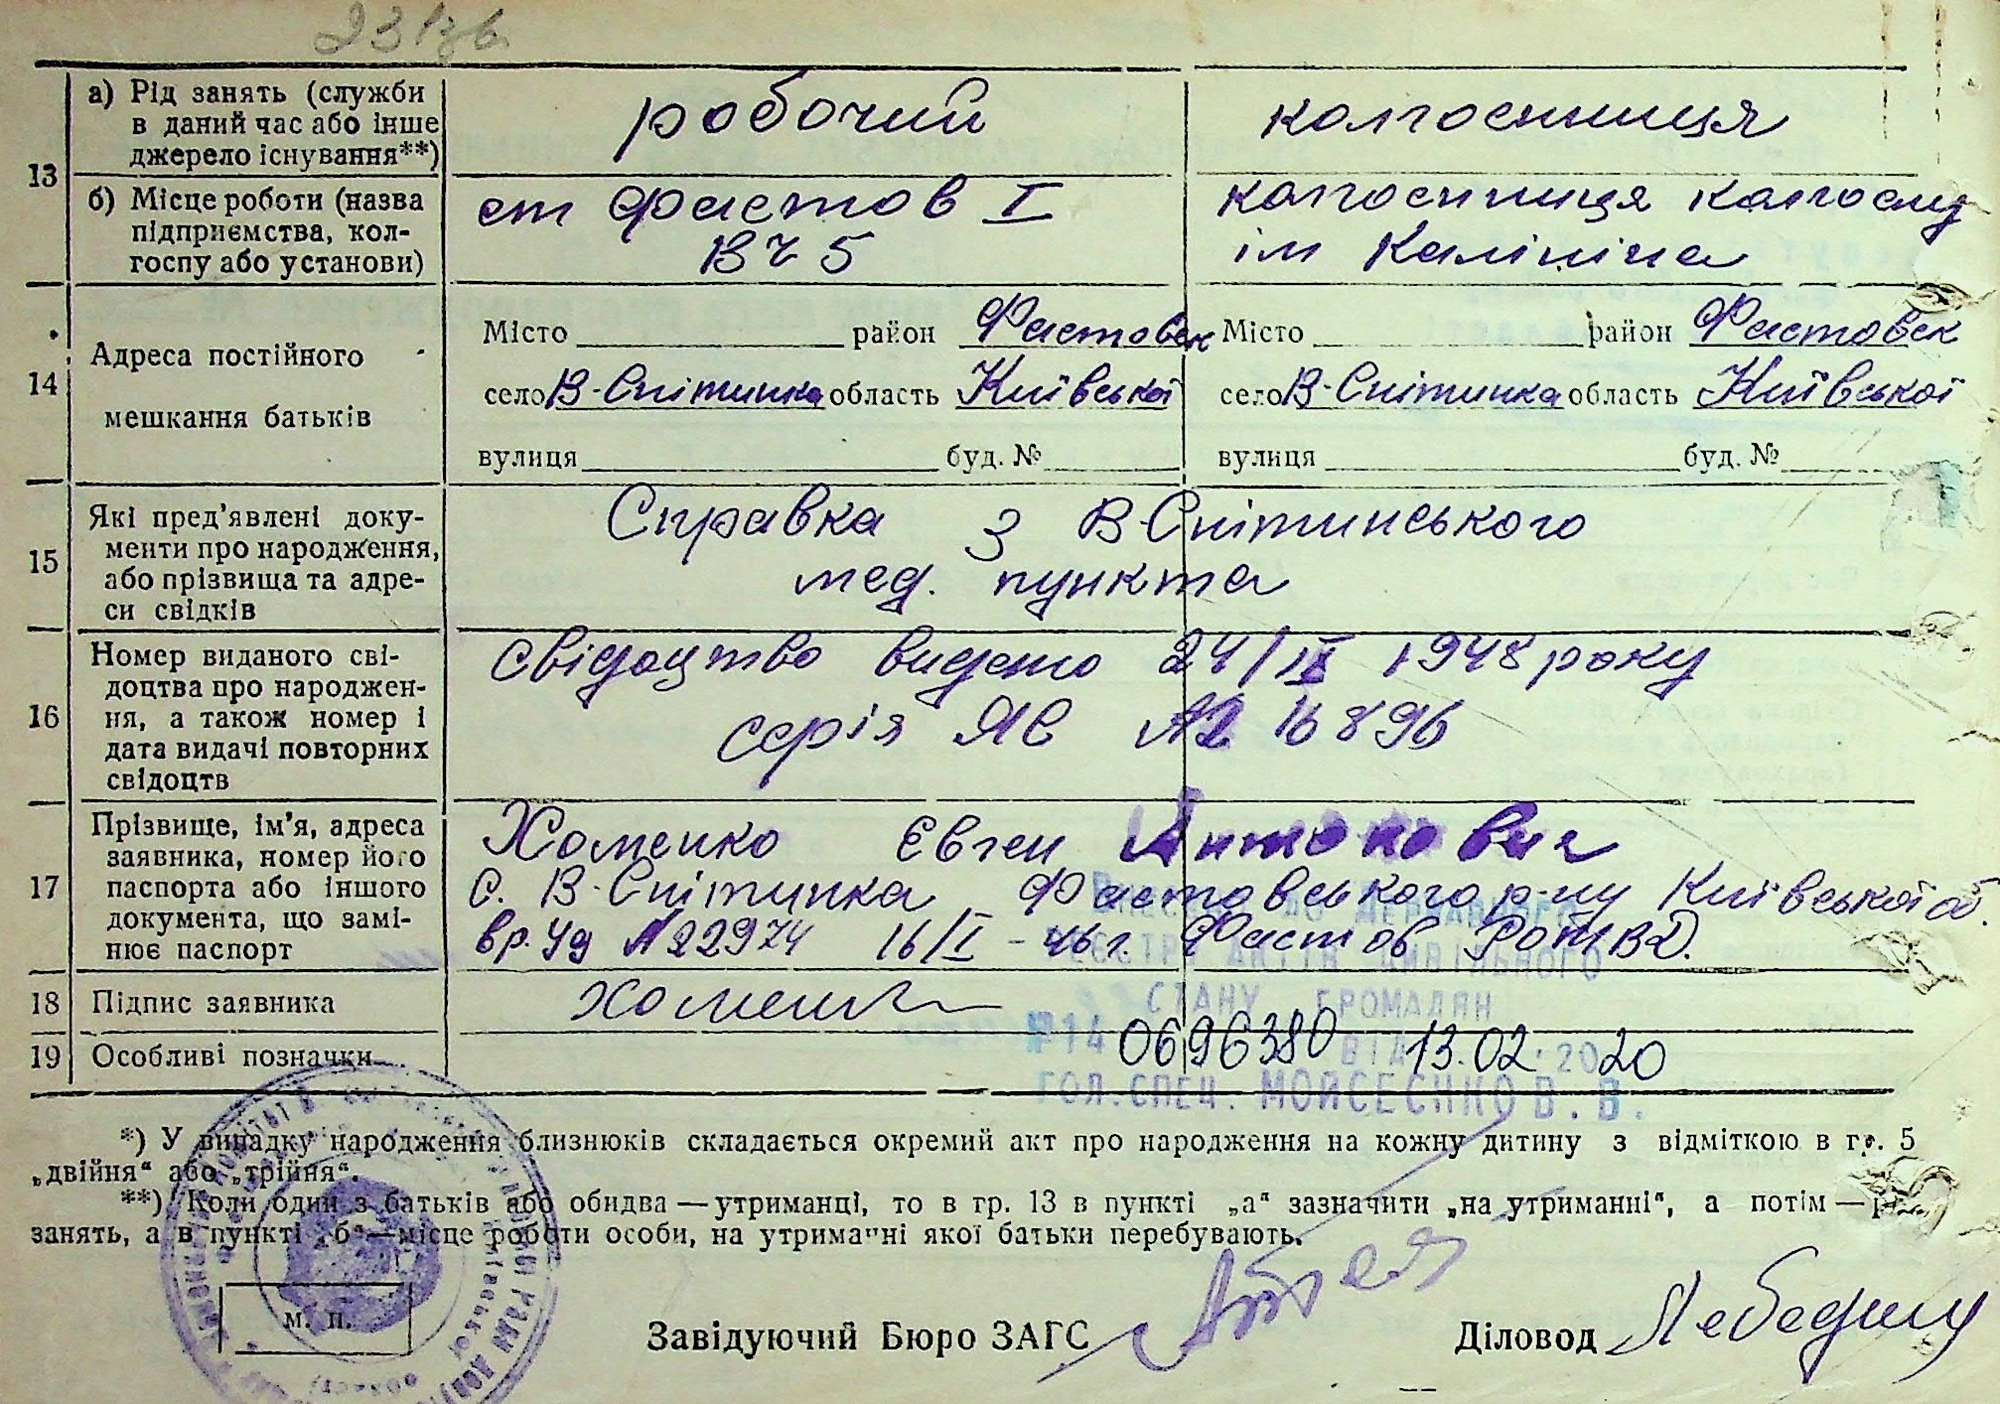 23 Ізв.
13
а) Рід занять (служби
в даний час або інше
джерело існування**)
робочий
колгоспниця
б) Місце роботи (назва
підприємства, кол-
госпу або установи)
ст Фастов I
ВЧ 5
колгоспниця колгоспу
ім Калініна
14
Адреса постійного
мешкання батьків
Місто район Фастовськ
село В-Снітинка область Київської
вулиця буд. №
Місто район Фастовськ
село В-Снітинка область Київської
вулиця буд. №
15
Які пред'явлені доку-
менти про народження,
або прізвища та адре-
си свідків
Справка з В-Снітинського
мед. пункта
16
Номер виданого сві-
доцтва про народжен-
ня, а також номер і
дата видачі повторних
свідоцтв
Свідоцтво видано 24/IX 1948 року
серія ЯЄ № 16896
17
Прізвище, ім'я, адреса
заявника, номер його
паспорта або іншого
документа, що замі-
нює паспорт
Хоменко Євген Антонович
с. В-Снітинка Фастовського р-ну Київської об.
вр. уд № 22974 16/I - 46 г. Фастов РОМВД.
ВНЕСЕНО ДО ДЕРЖАВНОГО
РЕЄСТРУ АКТІВ ЦИВІЛЬНОГО
СТАНУ ГРОМАДЯН
18
Підпис заявника
Хоменко
19
Особливі позначки
№14 0696380 ВІД 13.02.2020
ГОЛ.СПЕЦ. МОЙСЕЄНКО В. В.
*) У випадку народження близнюків складається окремий акт про народження на кожну дитину з відміткою в гр. 5
„двійня“ або „трійня“.
**) Коли один з батьків або обидва — утриманці, то в гр. 13 в пункті „а“ зазначити „на утриманні“, а потім —
занять, а в пункті „б“ — місце роботи особи, на утриманні якої батьки перебувають.
м. п.
Завідуючий Бюро ЗАГС
Діловод